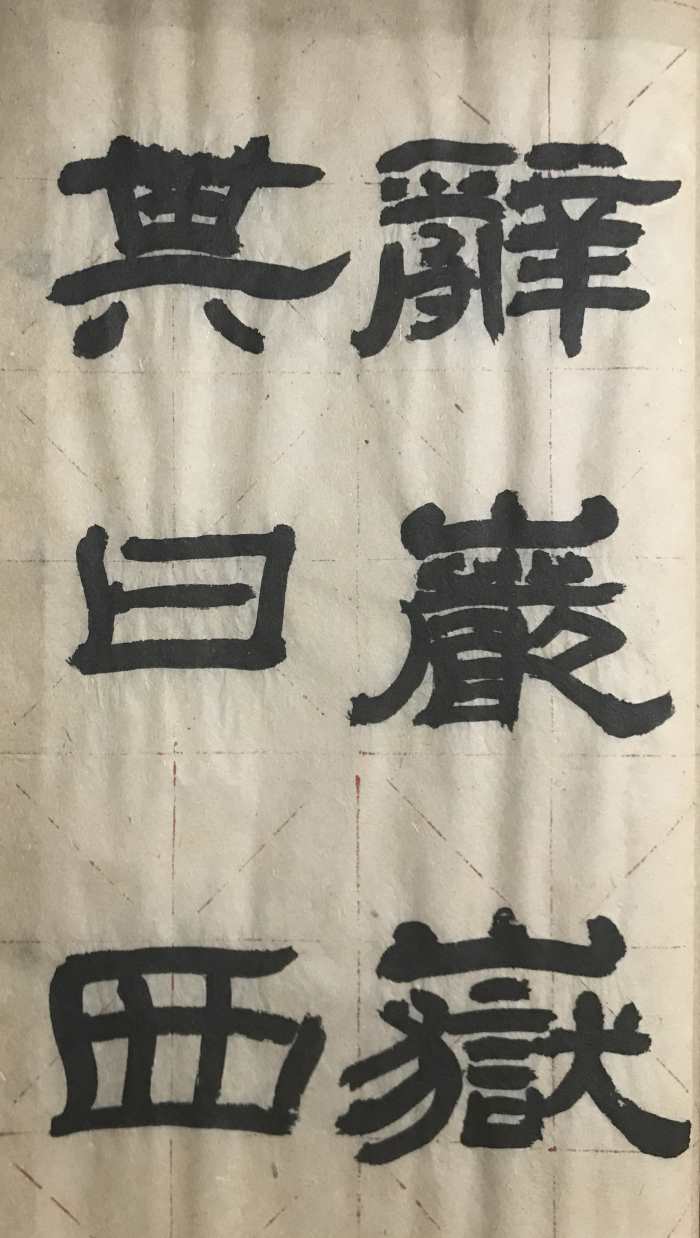 其辭
曰巖
西嶽